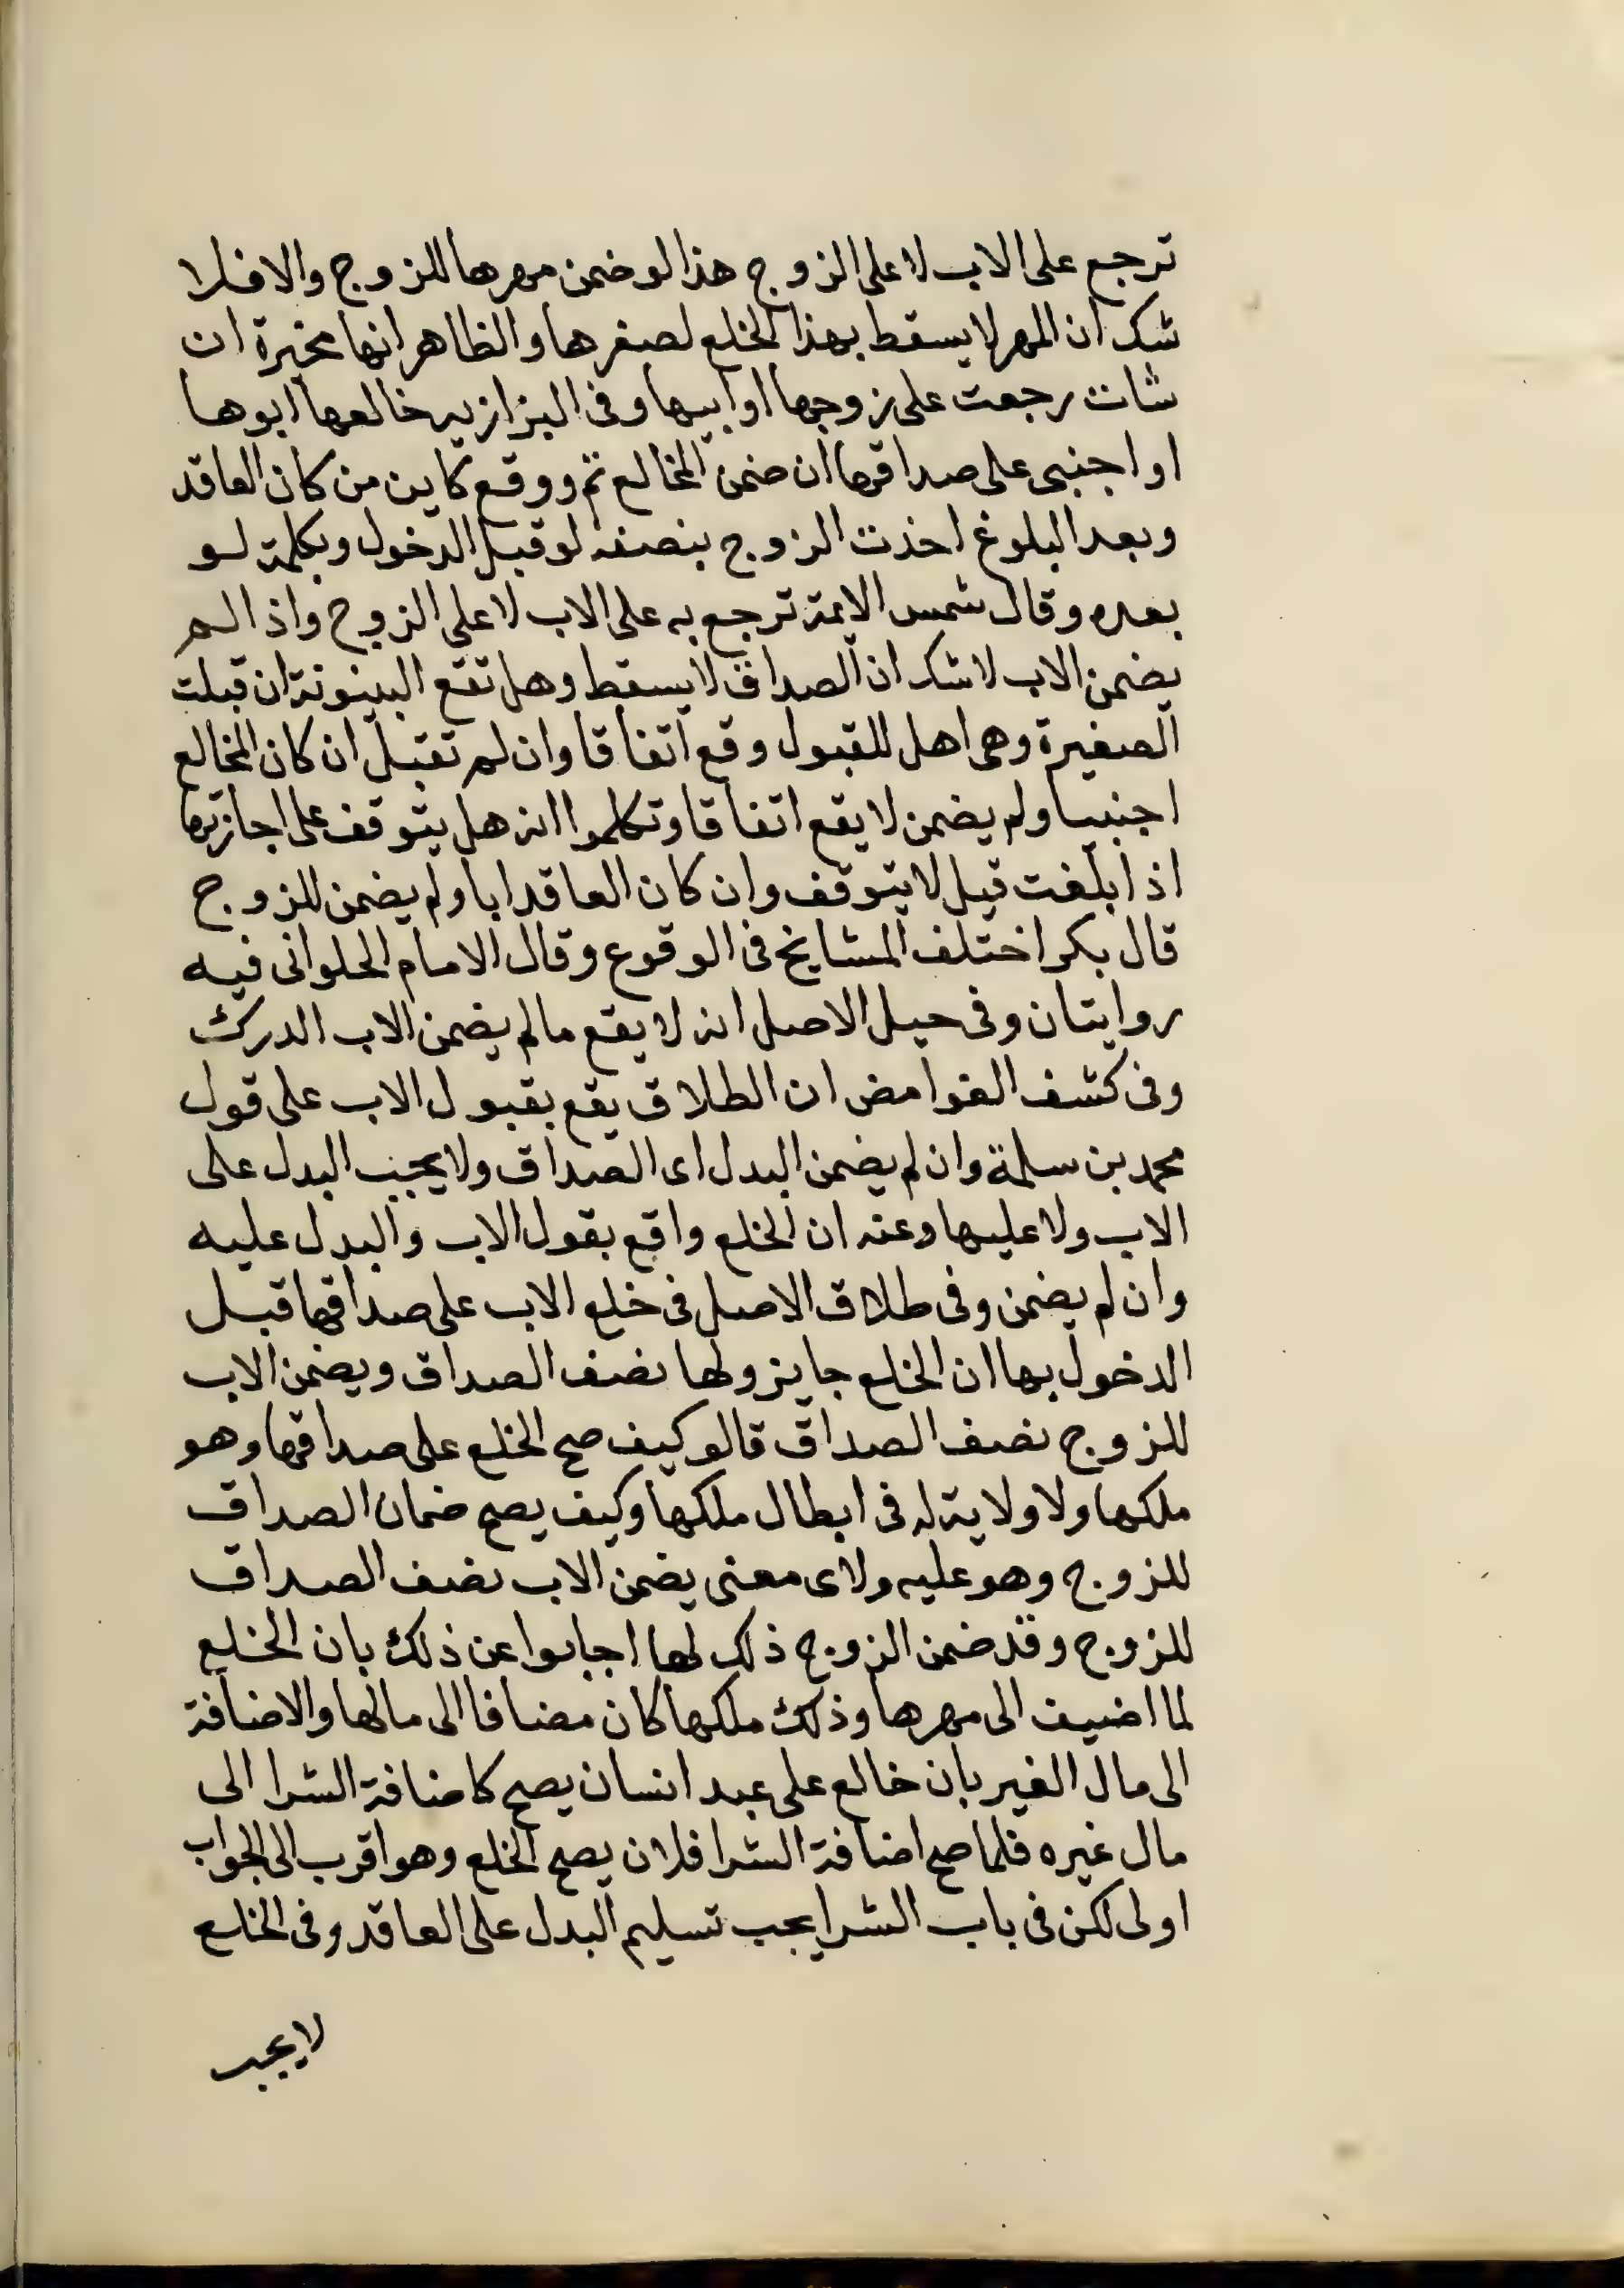 ترجع على الاب لا على الزوج هذا لو ضمن مهرها للزوج والا فلا
شك ان المهر لا يسقط بهذا الخلع لصغرها والظاهر انها مخيرة ان
شات رجعت على زوجها او ابيها وفى البزازيه خالعها ابوها
او اجنبى على صداقها ان ضمن المخالع تم ووقع كاين من كان العاقد
وبعد البلوغ اخذت الزوج بنصفه لو قبل الدخول وبكلمة لو
بعده وقال شمس الايمة ترجع به على الاب لا على الزوج واذا لم
يضمن الاب لا شك ان الصداق لا يسقط وهل تقع البينونة ان قبلت
الصغيرة وهى اهل للقبول وقع اتفاقا وان لم تقبل ان كان المخالع
اجنبيا ولم يضمن لا يقع اتفاقا وتكلموا انه هل يتوقف على اجازتها
اذا بلغت قيل لا يتوقف وان كان العاقد ابا ولم يضمن للزوج
قال بكر اختلف المشايخ فى الوقوع وقال الامام الحلوانى فيه
روايتان وفى حيل الاصل انه لا يقع ما لم يضمن الاب الدرك
وفى كشف الغوامض ان الطلاق يقع بقبول الاب على قول
محمد بن سلمة وان لم يضمن البدل اى الصداق ولا يجب البدل على
الاب ولا عليها وعنه ان الخلع واقع بقول الاب والبدل عليه
وان لم يضمن وفى طلاق الاصل فى خلع الاب على صداقها قبل
الدخول بها ان الخلع جايز ولها نصف الصداق ويضمن الاب
للزوج نصف الصداق قالو كيف صح الخلع على صداقها وهو
ملكها ولا ولاية له فى ابطال ملكها وكيف يصح ضمان الصداق
للزوج وهو عليه ولاى معنى يضمن الاب نصف الصداق
للزوج وقد ضمن الزوج ذلك لها اجابوا عن ذلك بان الخلع
لما اضيف الى مهرها وذلك ملكها كان مضافا الى مالها والاضافة
الى مال الغير بان خالع على عبد انسان يصح كاضافة الشرا الى
مال غيره فلما صح اضافة الشرا فلان يصح الخلع وهو اقرب الى الجواب
اولى لكن فى باب الشرا يجب تسليم البدل على العاقد وفى الخلع
لا يجب